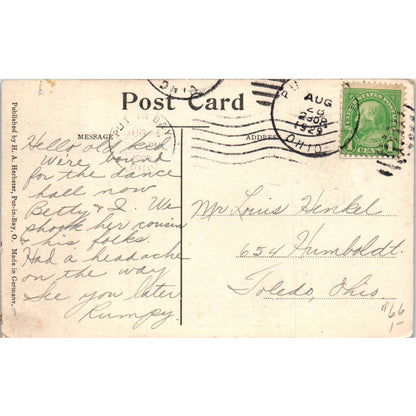 Post Card
MESSAGE
ADDRESS
PUT-IN-BAY
OHIO
AUG
28
1929
OHIO
UNITED STATES POSTAGE
CENTS
Hello old kid
We're bound
for the dance
hall now
Betty & I. We
shook her cousin
& his folks.
Had a headache
on the way
See you later
Rumpy.
Mr Louis Henkel
654 Humboldt.
Toledo, Ohio
Published by H. A. Herbster, Put-in-Bay, O. Made in Germany.
#66
1-